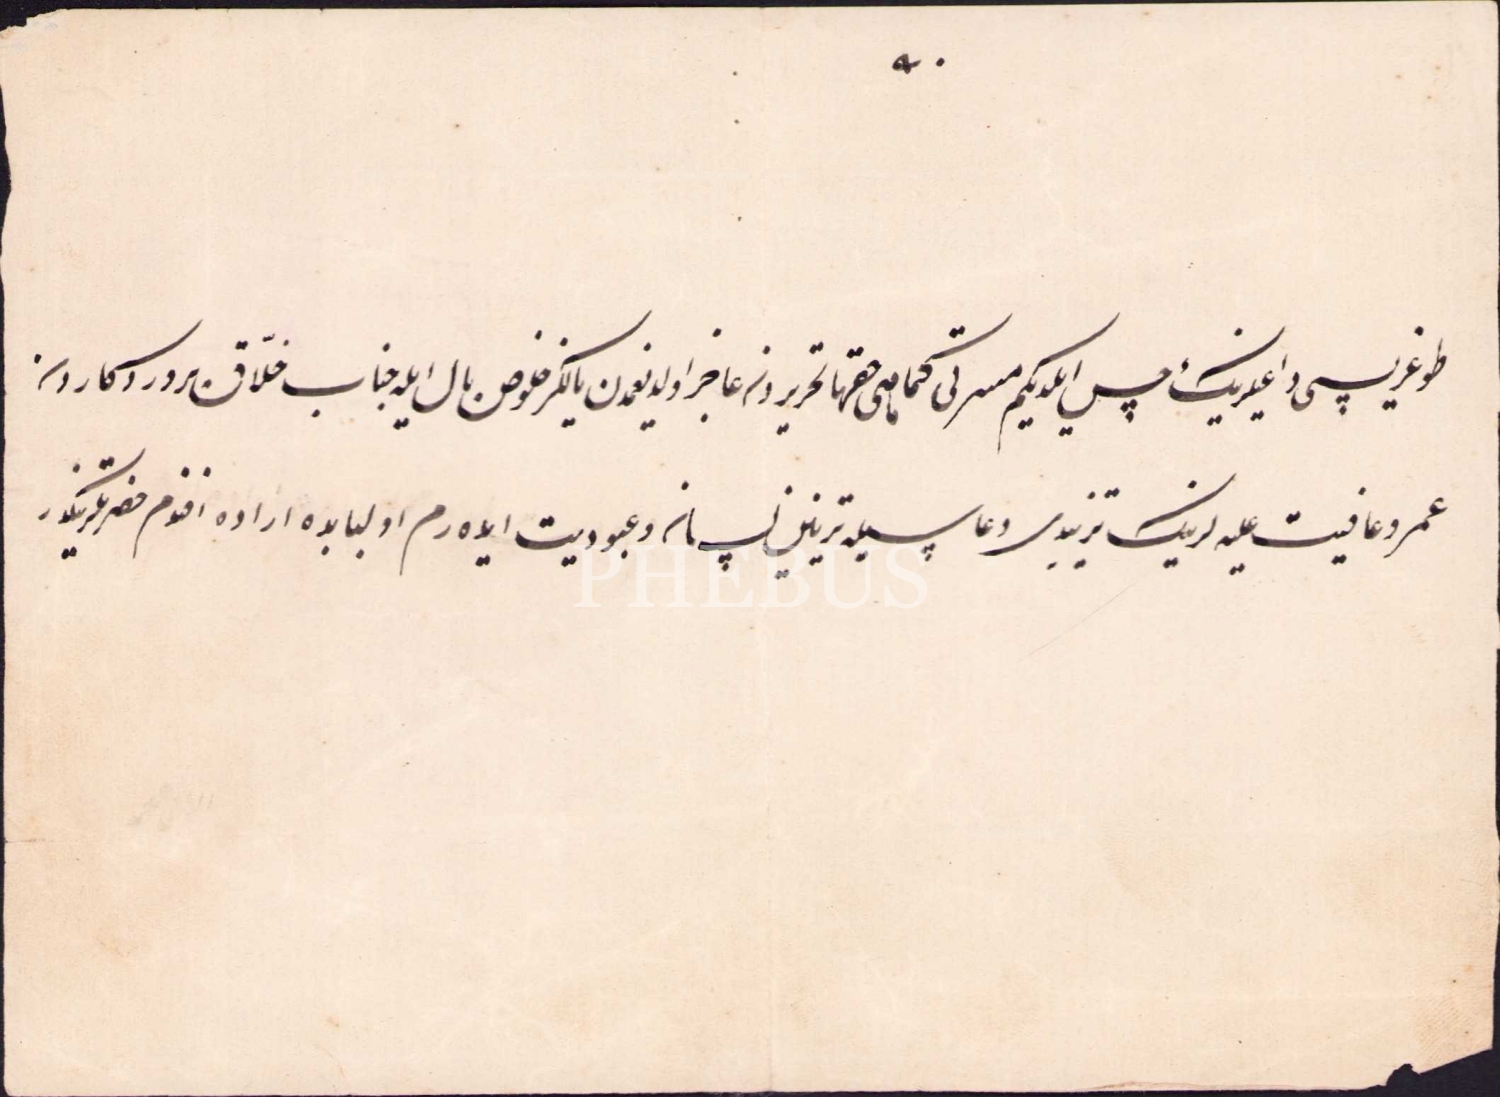 طوغریسی داعیلرینك حس ایلدیكم مسرتی كما هی حقها تحریردن عاجز اولدیغمدن یالكز خلوص بال ایله جناب خلّاق پروردكاردن
عمر و عافیت علیه لرینك تزییدی دعاسیله تزیین لسان عبودیت ایده رم اولبابده اراده افندم حضرتلرینكدر
PHEBUS